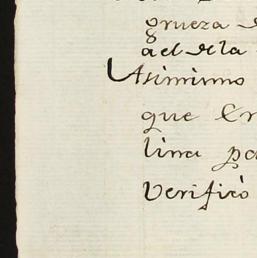 grueza
ael de la
Asimismo
que en
lina pa
verificò